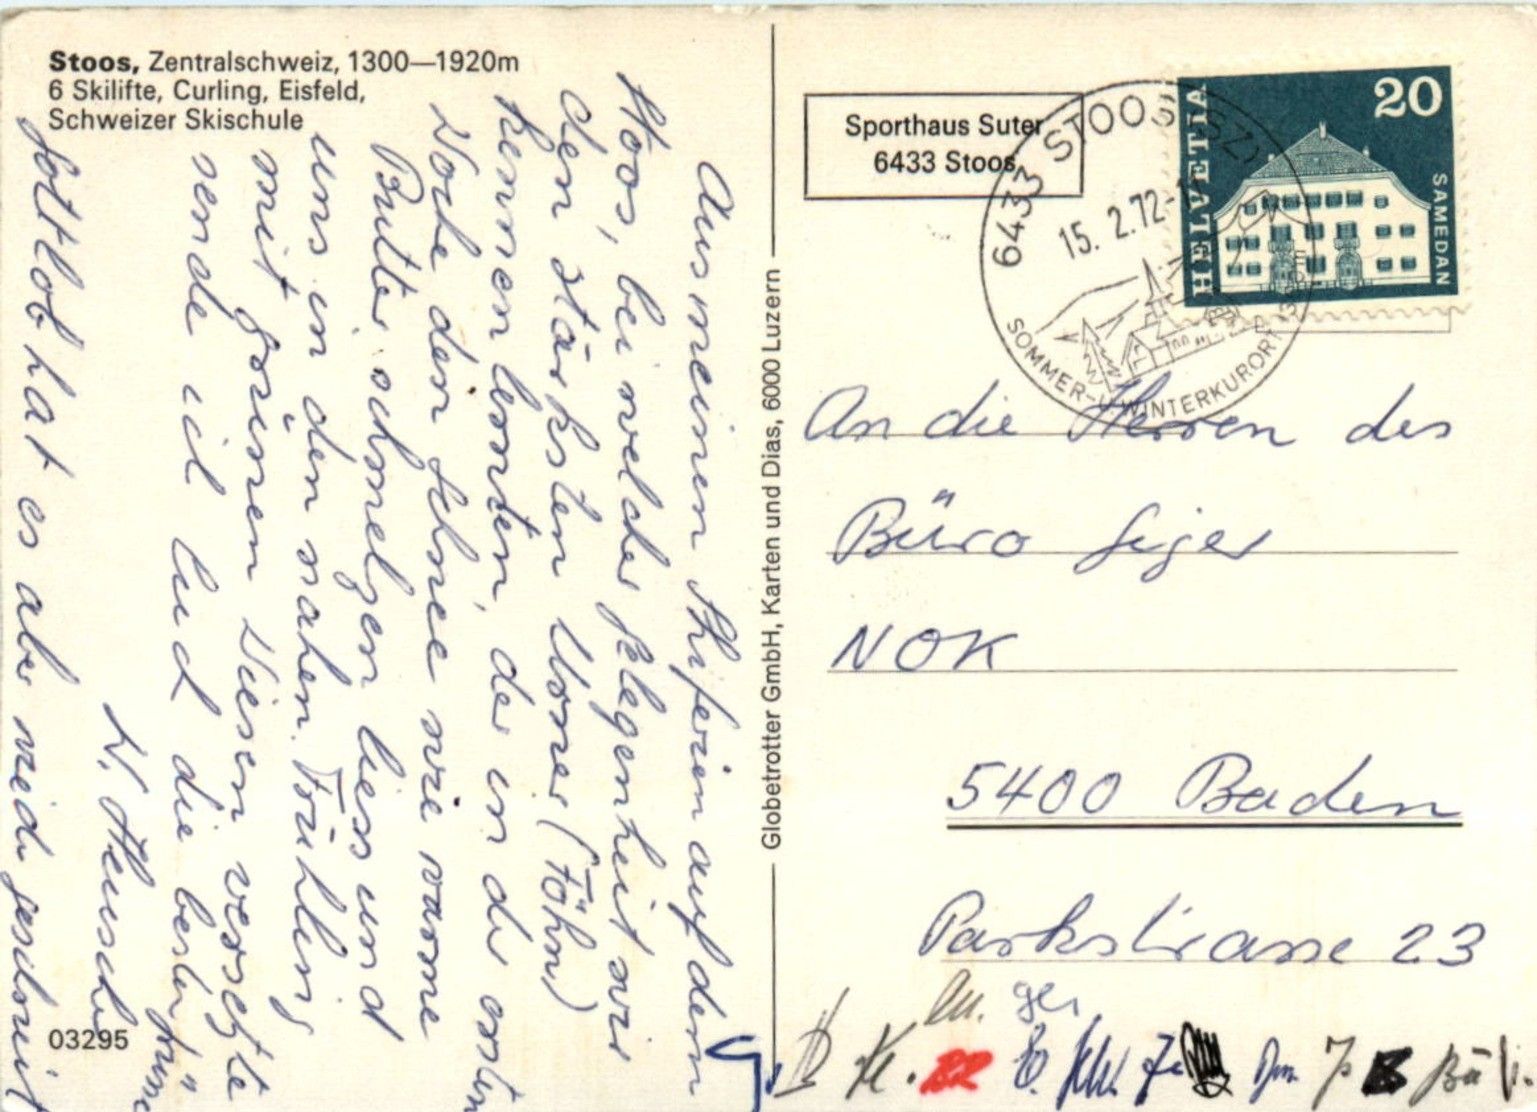 Stoos, Zentralschweiz, 1300—1920m
6 Skilifte, Curling, Eisfeld,
Schweizer Skischule
Aus meinen Skiferien auf dem
Stoos, bei welcher Gelegenheit wir
den stärksten Urner (Föhn)
kennen lernten, der in der ersten
Woche den Schnee wie warme
Butter schmelzen liess und
uns in den nahen Frühling
mit grünen Wiesen versetzte
sende ich Euch die besten Grüsse
Gottlob hat es aber wieder geschneit
03295
Globetrotter GmbH, Karten und Dias, 6000 Luzern
Sporthaus Suter
6433 Stoos
6433 STOOS (SZ)
15. 2.72
SOMMER-U. WINTERKURORT
HELVETIA
20
SAMEDAN
An die Herren des
Büro
NOK
5400 Baden
Parkstrasse 23